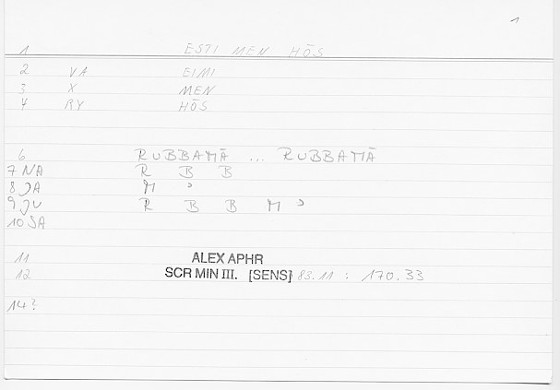 1
1 ESTI MEN HŌS
2 VA EIMI
3 X MEN
4 RY HŌS
6 RUBBAMĀ ... RUBBAMĀ
7 NA R B B
8 JA M ʾ
9 JV R B B M ʾ
10 SA
11 ALEX APHR
12 SCR MIN III. [SENS] 83.11 : 170.33
14?